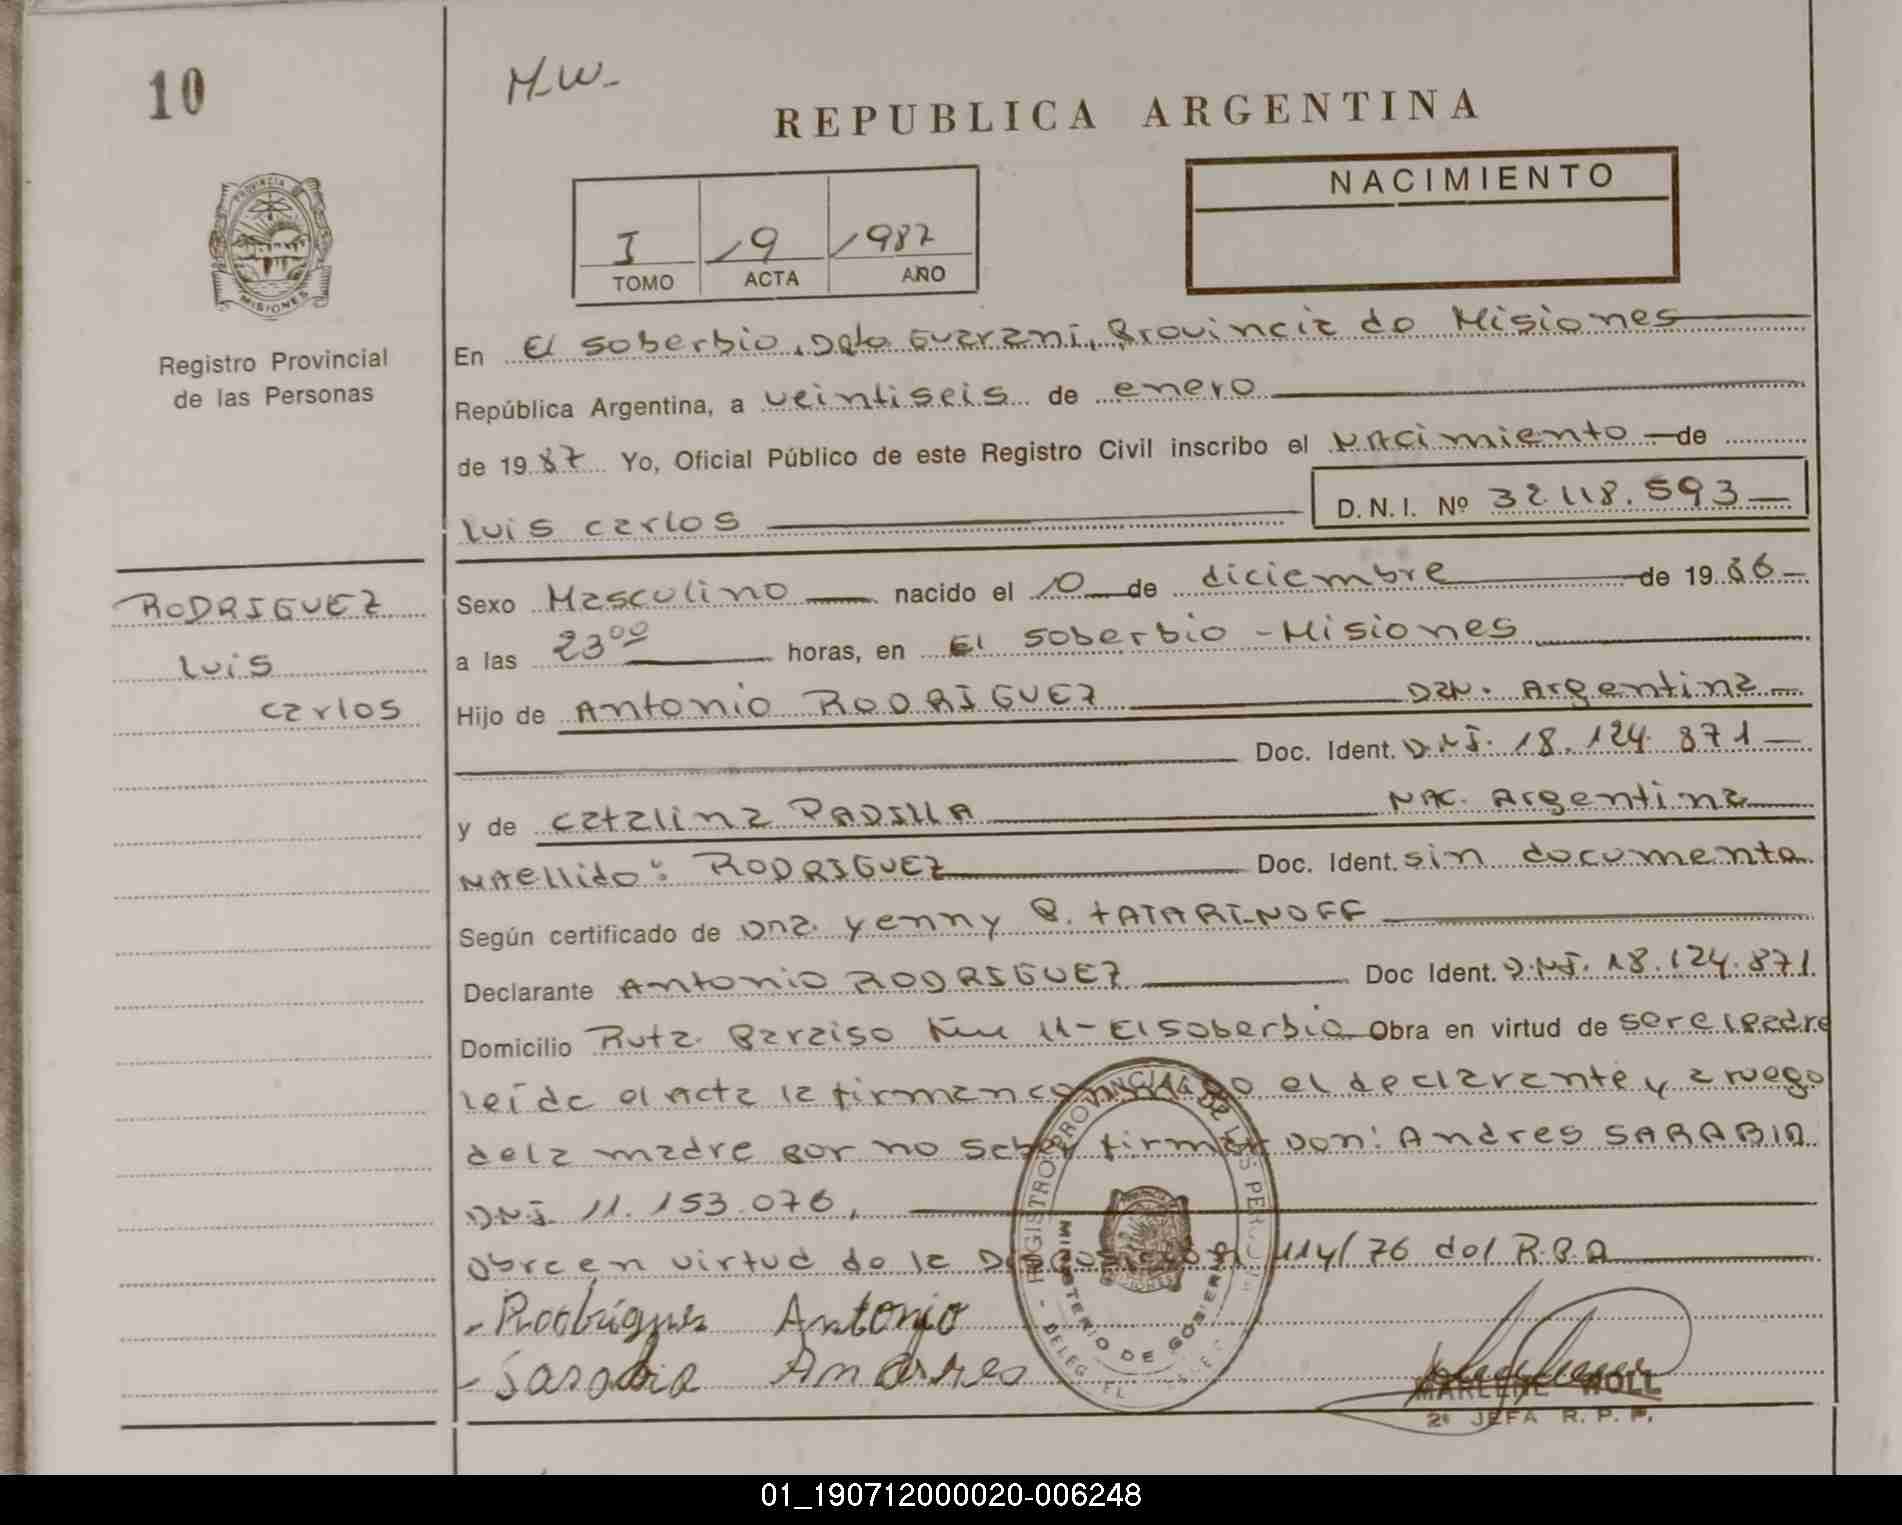 10
M.W.
REPUBLICA ARGENTINA
NACIMIENTO
I 19 1987
TOMO ACTA AÑO
PROVINCIA
MISIONES
Registro Provincial
de las Personas
En El soberbio, Dpto Guarani, Provincia de Misiones
República Argentina, a veintiseis de enero
de 1987 Yo, Oficial Público de este Registro Civil inscribo el NAcimiento de
Luis carlos D.N.I. Nº 32.118.593
RODRIGUEZ
Luis
carlos
Sexo Masculino nacido el 10 de diciembre de 1986
a las 23⁰⁰ horas, en El soberbio - Misiones
Hijo de Antonio RODRIGUEZ Argentina
Doc. Ident. D.N.I. 18.124.871
y de catalina PADILLA NAC. Argentina
RODRIGUEZ Doc. Ident. sin documento
Según certificado de Dra. Yenny P. TATARINOFF
Declarante Antonio RODRIGUEZ Doc Ident. D.N.I. 18.124.871
Domicilio Ruta Paraiso Km 11 - El soberbio Obra en virtud de ser el padre
leída el Acta la firman conmigo el declarante y a ruego
de la madre por no saber firmar Don: Andres SARABIA
DNI 11.153.076.
Obra en virtud de la Disposición 114/76 del R.P.P
- Rodrigues Antonio
- Sarabia Andres
REGISTRO PROVINCIAL DE LAS PERSONAS
MINISTERIO DE GOBIERNO
DELEG. EL
MARLENE WOLL
2º JEFA R. P. P.
01_190712000020-006248